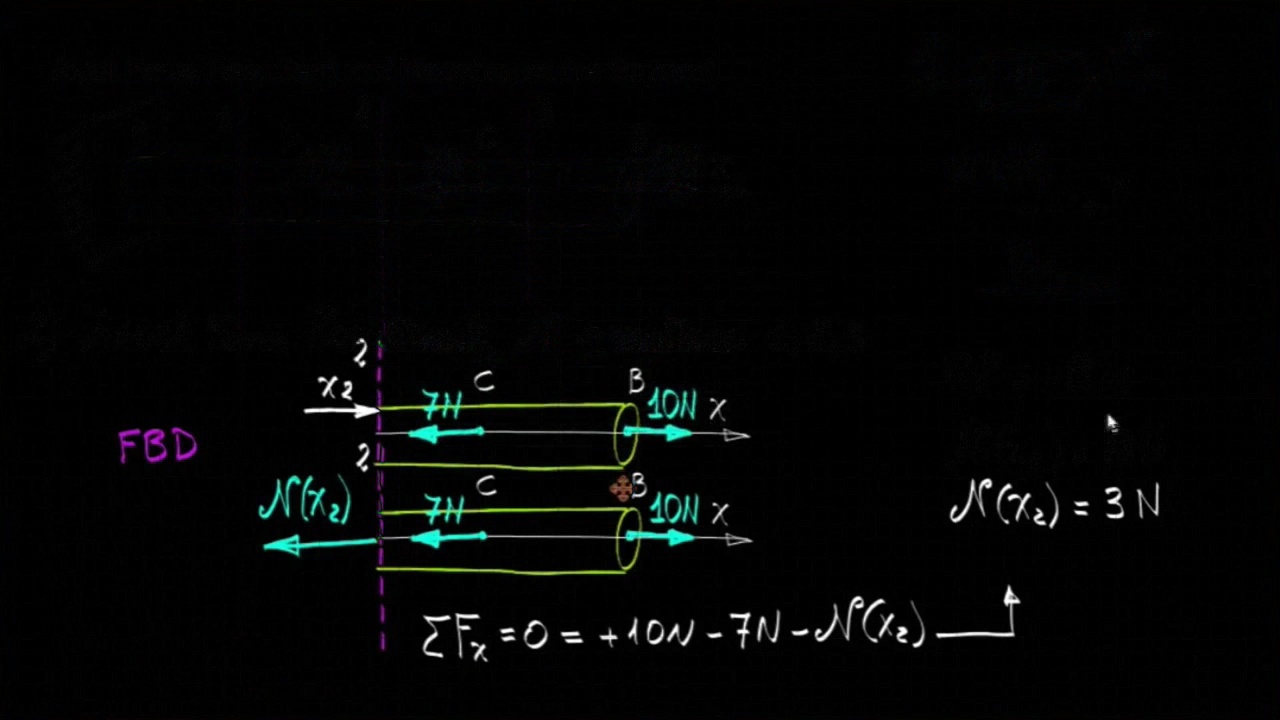 2
x₂ 7N C B 10N x
FBD
2
N(x₂) 7N C B 10N x
N(x₂) = 3N
ΣFₓ = 0 = +10N - 7N - N(x₂)